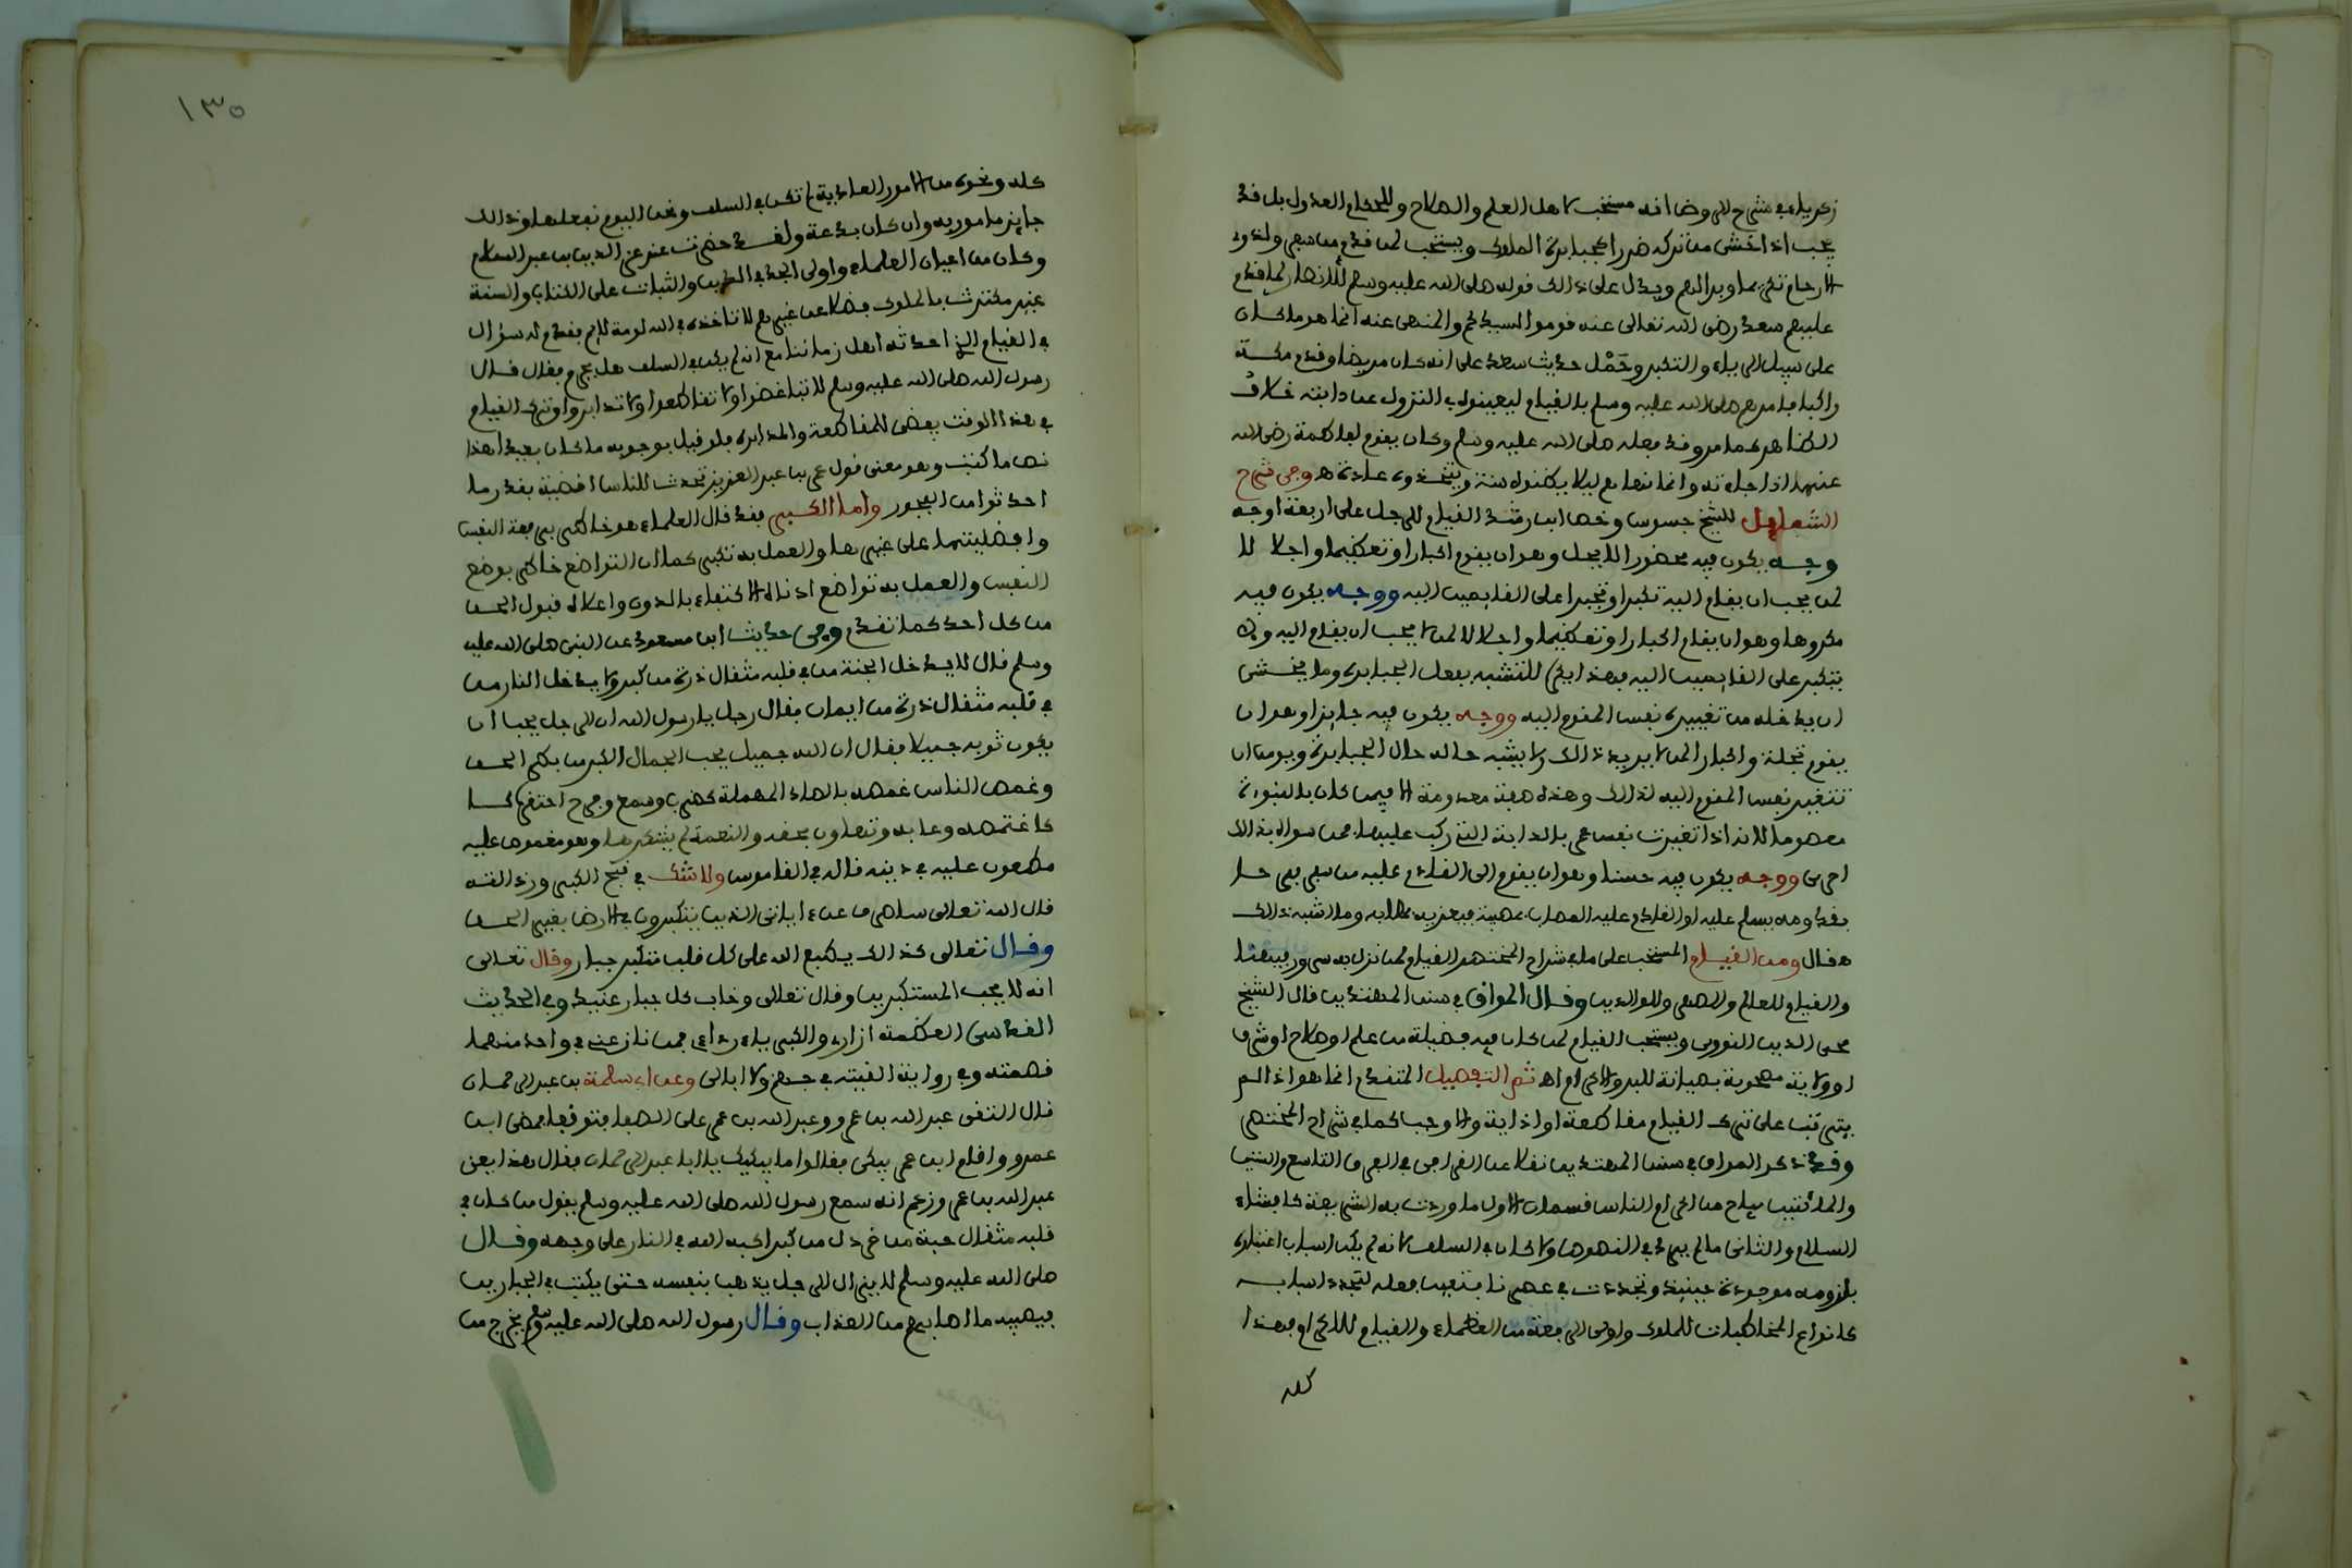 زكرياء في شرح الروض انه مستحب لاهل العلم والصلاح وللحكام العدول بل قد
يجب اذا خشى من تركه ضررا كجبابرة الملوك ويستحب لمن قدم من سفر ولذوي
الارحام تكريما وبرا لهم ويدل على ذالك قوله صلى الله عليه وسلم للانصار لما قدم
عليهم سعد رضي الله تعالى عنه قوموا لسيدكم والمنهى عنه انما هو ما كان
على سبيل الرياء والتكبر وحَمْل حديث سعد على انه كان مريضا وقدم مكة
راكبا فامرهم صلى الله عليه وسلم بالقيام ليعينوه في النزول عن دابته خلاف
الظاهر كما مر وقد فعله صلى الله عليه وسلم وكان يقوم لفاطمة رضي الله
عنها اذا جاءته وانما نهاهم ليلا يظنوه سنة ويتخذوه عادة هـ وفى شرح
الشمايل للشيخ جسوس وخص ابن رشد القيام للرجل على اربعة اوجه
وجه يكون فيه محضورا لا يحل وهو ان يقوم اكبارا وتعظيما واجلالا
لمن يجب ان يقام اليه تكبرا وتجبرا على القايمين اليه ووجه يكون فيه
مكروها وهو ان يقام اكبارا وتعظيما واجلالا لمن لا يجب ان يقام اليه ولا
يتكبر على القايمين اليه فهذا يكره للتشبه بفعل الجبابرة وما يخشى
ان يدخله من تغييره نفس المقوم اليه ووجه يكون فيه جايزا وهو ان
يقوم تجلة واكبارا لمن لا يريد ذالك ولا يشبه حاله حال الجبابرة ويومن ان
تتغير نفس المقوم اليه لذالك وهذه صفة معدومة الا فيمن كان بالنبوءة
معصوما لانه اذا تغيرت نفس عمر بالدابة التي ركب عليها فمن سواه بذالك
احرى ووجه يكون فيه حسنا وهو ان يقوم الى القادم عليه من سفر فرحا
بقدومه يسلم عليه او القادم عليه المصاب بمصيبة فيعزيه بمصابه وما اشبه ذالك
هـ قال ومن القيام المستحب على ما في شراح المختصر القيام لمن نزل به سرور فيهنا
والقيام للعالم والصهر وللوالدين وقال المواق في سنن المهتدين قال الشيخ
محي الدين النووي ويستحب القيام لمن كان فيه فضيلة من علم او صلاح او شرف
او ولاية مصحوبة بصيانة للبر والاكرام اهـ ثم التفصيل المتقدم انما هو اذا لم
يترتب على ترك القيام مقاطعة او اذاية والا وجب كما في شراح المختصر
وقد ذكر المواق في سنن المهتدين نقلا عن القرافي في الفرق التاسع والستين
والمائتين مباح من اكرام الناس قسمان الاول ما وردت به الشريعة كافشاء
السلام والثاني ما لم يرد في النصوص ولا كان في السلف لانه لم يكن اسباب اعتباره
بلزومه موجودة حينيذ وتجددت في عصرنا فتعين فعله لتجدد اسبابه
كانواع المخاطبات للملوك واولى الرفعة من العظماء والقيام للاكرام فهذا
كله
١٣٥
كله ونحوه من الامور العادية لم تكن في السلف ونحن اليوم نفعلها وذالك
جايز مامور به وان كان بدعة ولقد حضرت عند عز الدين بن عبد السلام
وكان من اعيان العلماء واولى الجد في الدين والثبات على الكتاب والسنة
غير مكترث بالملوك فضلا عن غيرهم لا تاخذه في الله لومة لايم فقدم له سؤال
في القيام الذي احدثه اهل زماننا مع انه لم يكن في السلف هل يحرم فقال قال
رسول الله صلى الله عليه وسلم لا تباغضوا ولا تقاطعوا ولا تدابروا وترك القيام
في هذا الوقت يفضي للمقاطعة والمدابرة فلو قيل بوجوبه ما كان بعيدا هذا
نص ما كتب وهو معنى قول عمر بن عبد العزيز تحدث للناس اقضية بقدر ما
احدثوا من الفجور واما الكبر فقد قال العلماء هو خاطر برفعة النفس
وافضليتها على غيرها والعمل به تكبر كما ان التواضع خاطر بوضع
النفس والعمل به تواضع ادناه الاكتفاء بالدون واعلاه قبول الحق
من كل احد كما تقدم وفى حديث ابن مسعود عن النبى صلى الله عليه
وسلم قال لا يدخل الجنة من في قلبه مثقال ذرة من كبر ولا يدخل النار من
في قلبه مثقال ذرة من ايمان فقال رجل يا رسول الله ان الرجل يحب ان
يكون ثوبه جميلا فقال ان الله جميل يحب الجمال الكبر من بطر الحق
وغمص الناس غمصه بالصاد المهملة كضرب وسمع وفرح احتقره كـ
كاغتمصه وعابه وتهاون بحقه والنعمة لم يشكرها وهو مغموص عليه
مطعون عليه في دينه قاله في القاموس ولا شك في قبح الكبر ورذالته
قال الله تعالى ساصرف عن ءاياتي الذين يتكبرون في الارض بغير الحق
وقال تعالى كذالك يطبع الله على كل قلب متكبر جبار وقال تعالى
انه لا يحب المستكبرين وقال تعالى وخاب كل جبار عنيد وفي الحديث
القدسى العظمة ازاري والكبرياء ردائي فمن نازعني في واحد منهما
قصمته وفي رواية القيته في جهنم ولا ابالى وعن ابي سلمة بن عبد الرحمان
قال التقى عبد الله بن عمرو وعبد الله بن عمر على الصفا فتوقفا فمضى ابن
عمرو واقام ابن عمر يبكى فقالوا ما يبكيك يا ابا عبد الرحمان فقال هذا يعنى
عبد الله بن عمرو زعم انه سمع رسول الله صلى الله عليه وسلم يقول من كان في
قلبه مثقال حبة من خردل من كبر اكبه الله في النار على وجهه وقال
صلى الله عليه وسلم لا يزال الرجل يذهب بنفسه حتى يكتب في الجبارين
فيصيبه ما اصابهم من العذاب وقال رسول الله صلى الله عليه وسلم يخرج من